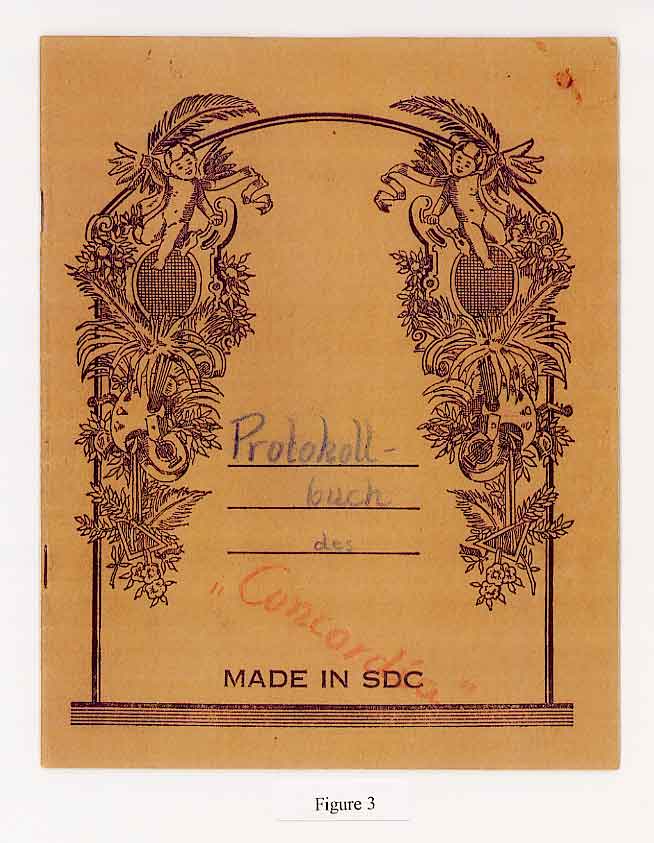 Protokoll-
buch
des
„Concordia"
MADE IN SDC
Figure 3